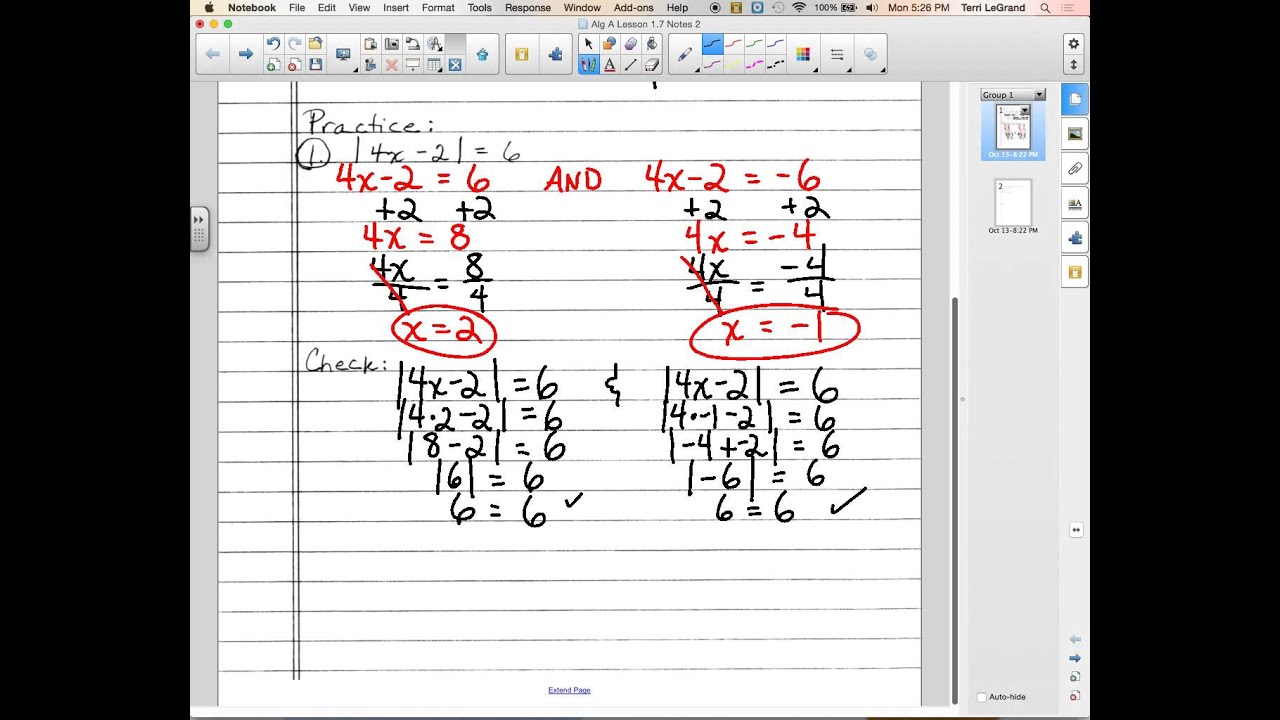 Notebook File Edit View Insert Format Tools Response Window Add-ons Help 100% Mon 5:26 PM Terri LeGrand
Alg A Lesson 1.7 Notes 2
Group 1
1
Oct 13–8:22 PM
2
Oct 13–8:22 PM
Practice:
1. |4x - 2| = 6
4x - 2 = 6 AND 4x - 2 = -6
+2 +2 +2 +2
4x = 8 4x = -4
4x/4 = 8/4 4x/4 = -4/4
x = 2 x = -1
Check: |4x - 2| = 6 & |4x - 2| = 6
|4 · 2 - 2| = 6 |4 · -1 - 2| = 6
|8 - 2| = 6 |-4 + -2| = 6
|6| = 6 |-6| = 6
6 = 6 ✓ 6 = 6 ✓
Extend Page
Auto-hide